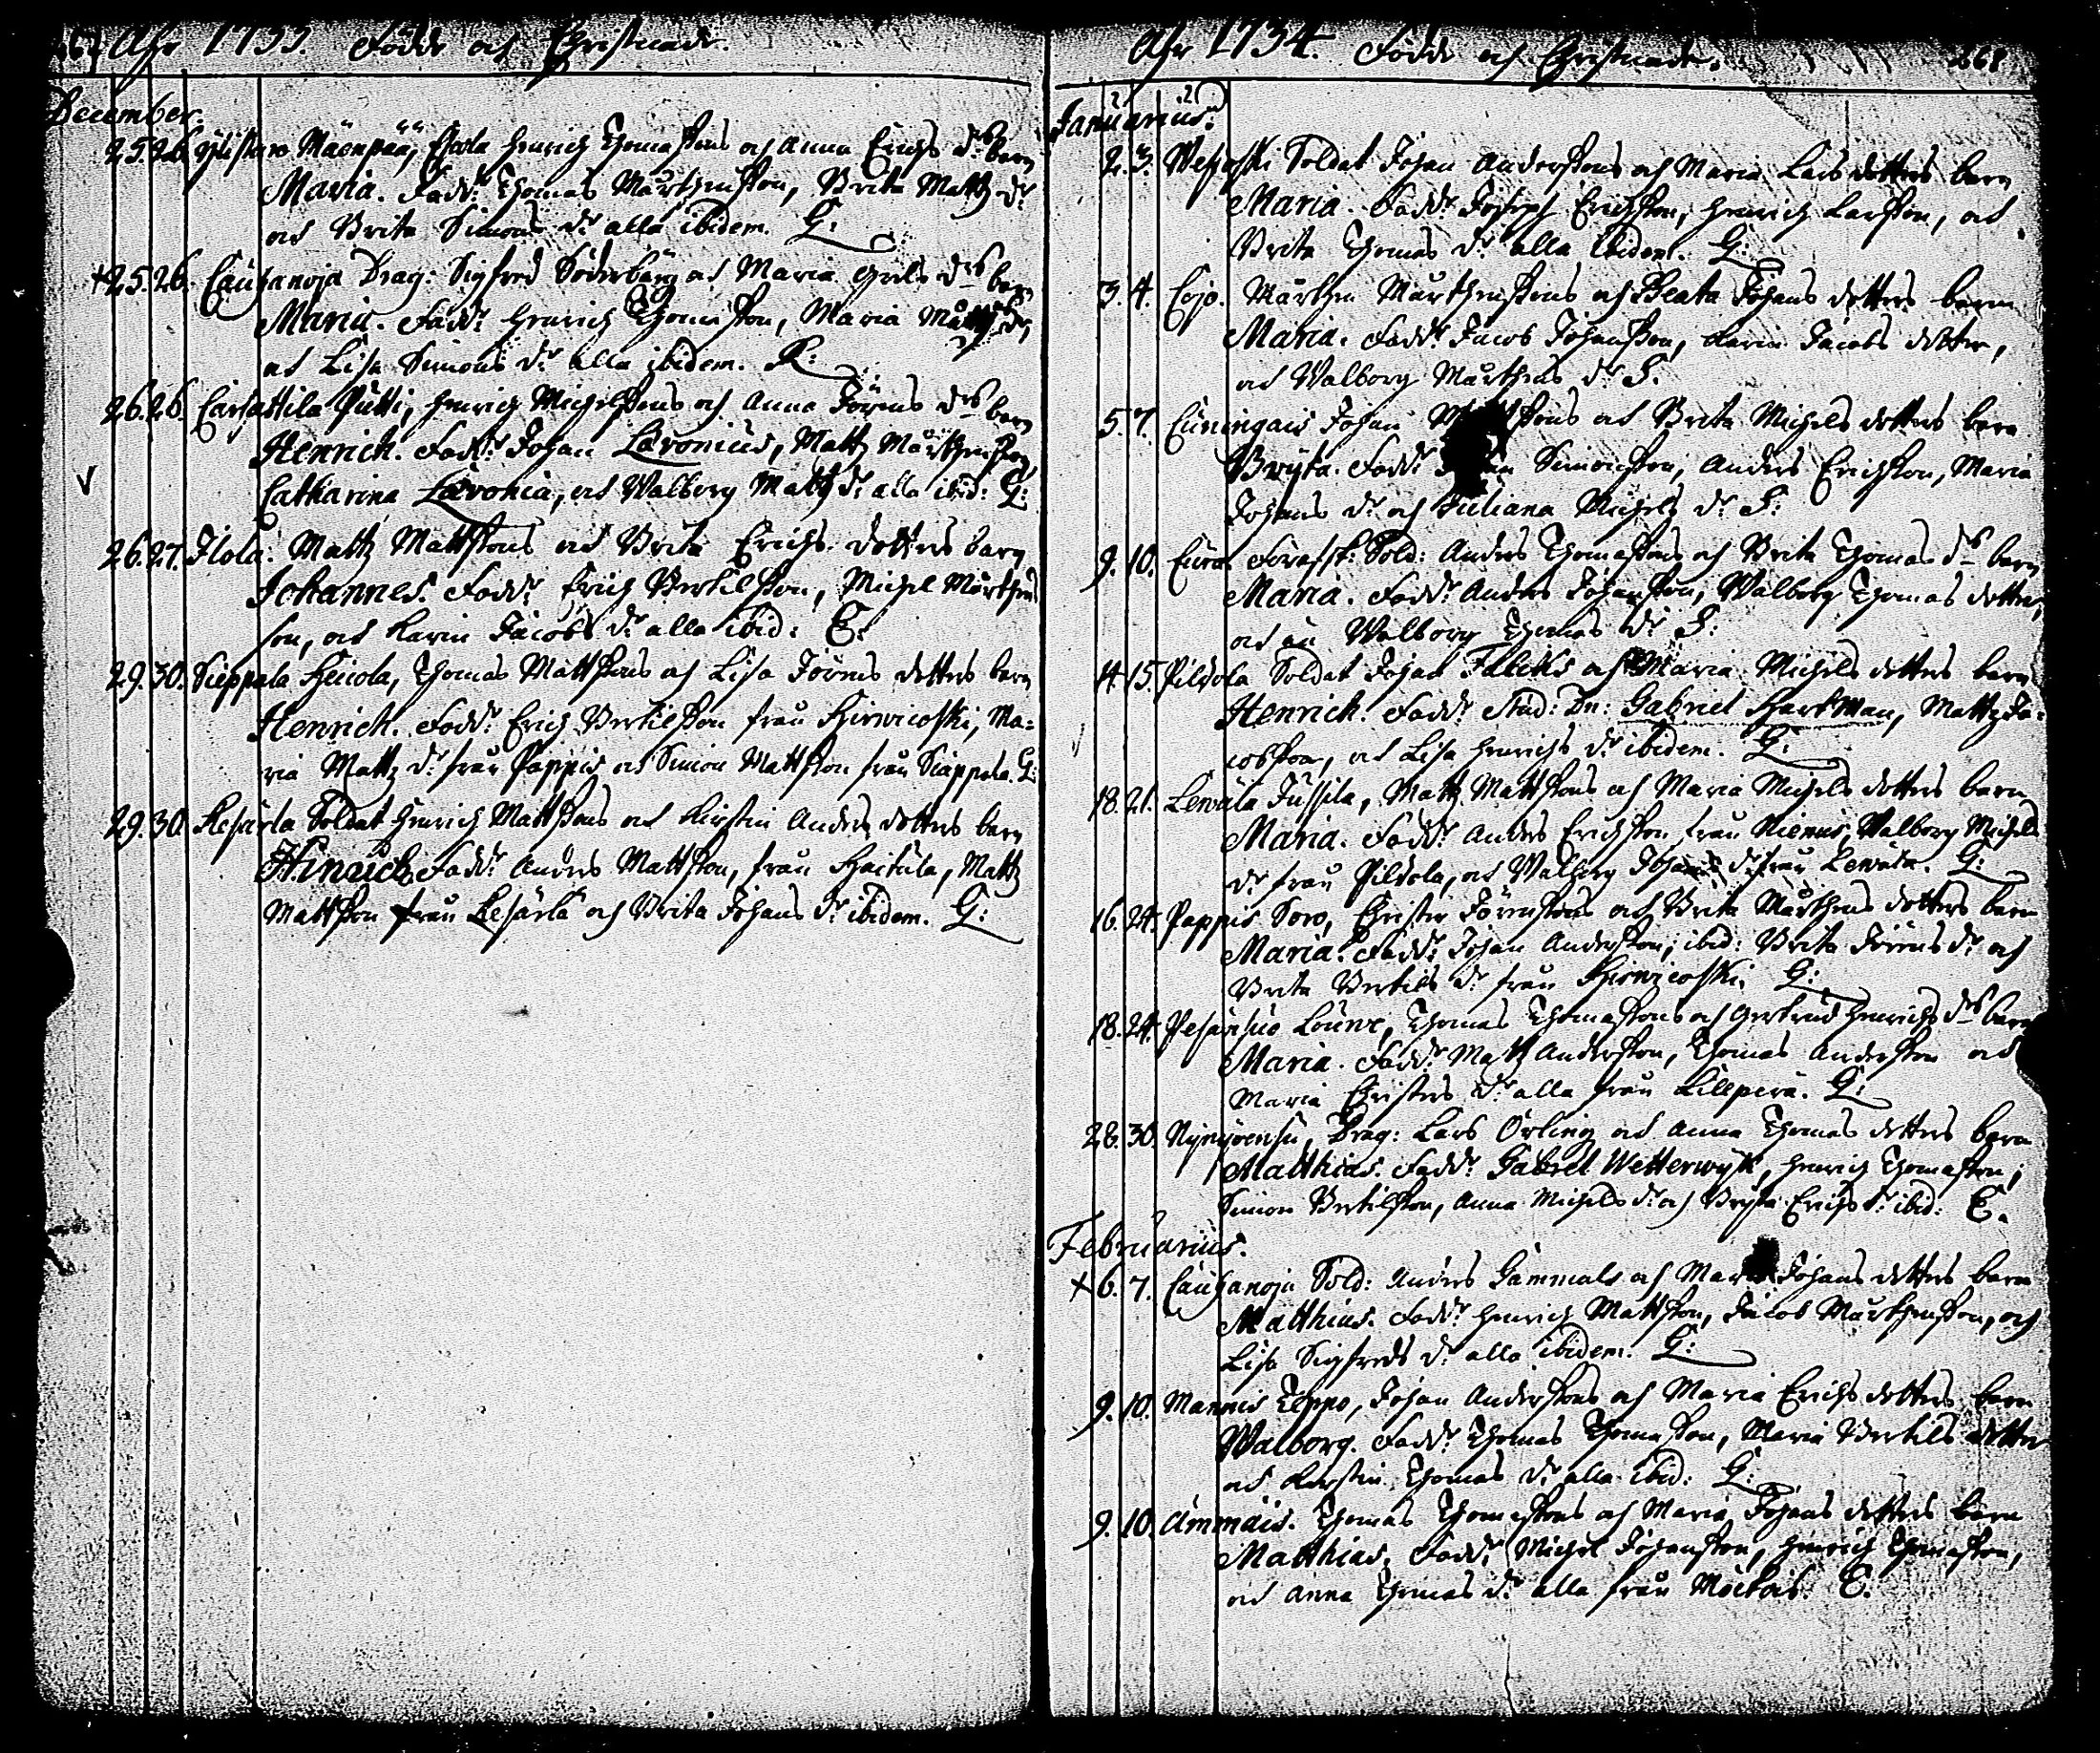 267 Åhr 1733. Födde och Christnade.
December.
25. 26. Ylistaro Mäenpää, Eskola Henrich Thomassons och Anna Erichs drs barn
Maria. Fadd: Thomas Mårthensson, Brita Mattz dr
och Brita Simons dr alla ibidem. G:
+ 25. 26. Cauhanoja Drag: Sigfred Söderberg och Maria Grels drs barn
Maria. Fadd: Henrich Thomasson, Maria dr,
och Lisa Simons dr alla ibidem.
26. 26. Carhattila Putti, Henrich Michelssons och Anna Jörens drs barn
Henrich. Fadd: Johan Lavonius, Mattz Mårthensson,
Catharina Lavonia, och Walborg Mattz dr alla ibid: G:
26. 27. Ilola: Mattz Mattssons och Brita Erichs dotters barn
Johannes. Fadd: Erich Bertilsson, Michel Mårthens
son, och Karin Jacobs dr alla ibid: E:
29. 30. Sieppala Heicola, Thomas Mattssons och Lisa Jörens dotters barn
Henrich. Fadd: Erich Bertilsson från Hirwicoski, Ma-
ria Mattz dr från Pappis och Simon Mattsson från Sieppala. G:
29. 30. Kesärla Soldat Henrich Mattssons och Kirstin Anders dotters barn
Hinrich Fadd: Anders Mattsson, från Haitula, Mattz
Mattsson från Kesärla och Brita Johans dr ibidem. G:
Åhr 1734. Födde och Christnade. 268
Januarius.
2. 3. Soldat Johan Anderssons och Maria Lars dotters barn
Maria. Fadd: Joseph Erichsson, Henrich Larsson, och
Brita Thomas dr alla ibidem. G:
3. 4. Cojo. Mårthen Mårthenssons och Beata Johans dotters barn
Maria. Fadd: Jacob Johansson, Karin Jacobs dotter,
och Walborg Mårthens dr S.
5. 7. Cuningais Johan och Brita Michels dotters barn
Bryta. Fadd: Simonsson, Anders Erichsson, Maria
Johans dr och Juliana Michels dr S:
9. 10. Cura Sold: Anders Thomassons och Brita Thomas drs barn
Maria. Fadd: Anders Johansson, Walborg Thomas dotter,
och än Walborg Thomas dr S:
14. 15. Pildola Soldat Johan Falcks och Maria Michels dotters barn
Henrich. Fadd: Stud: Dn: Gabriel Hartman, Mattz Ja-
cobsson, och Lisa Henrichs dr ibidem. G:
18. 21. Lewäla Jussila, Mattz Mattssons och Maria Michels dotters barn
Maria. Fadd: Anders Erichsson från Niemis, Walborg Michels
dr från Pildola, och Walborg Johans dr från Lewäla. G:
16. 24. Pappis Soro, Christer Jörenssons och Brita Mårthens dotters barn
Maria. Fadd: Johan Andersson, ibid: Brita Jörens dr och
Brita Bertils dr från Hirwicoski. G:
18. 24. Pesäisuo Thomas Thomassons och Gertrud Henrichs drs barn
Maria. Fadd: Mattz Andersson, Thomas Andersson och
Maria Christers dr alla från Lillperä. G:
28. 30. Drag: Lars Örling och Anna Thomas dotters barn
Matthias. Fadd: Gabriel Wetterwijk, Henrich Thomasson,
Simon Bertilsson, Anna Michels dr och Bryta Erichs dr ibid: E.
Februarius.
+ 6. 7. Cauhanoja Sold: Anders Gammals och Maria Johans dotters barn
Matthias. Fadd: Henrich Mattsson, Jacob Mårthensson, och
Lisa Sigfreds dr alla ibidem. G:
9. 10. Mannis Teppo, Johan Anderssons och Maria Erichs dotters barn
Walborg. Fadd: Thomas Thomasson, Maria Bertils dotter
och Kirstin Thomas dr alla ibid: G:
9. 10. Ammäis. Thomas Thomassons och Maria Johans dotters barn
Matthias. Fadd: Michel Johansson, Henrich Thomasson,
och Anna Thomas dr alla från Mäckois. E.